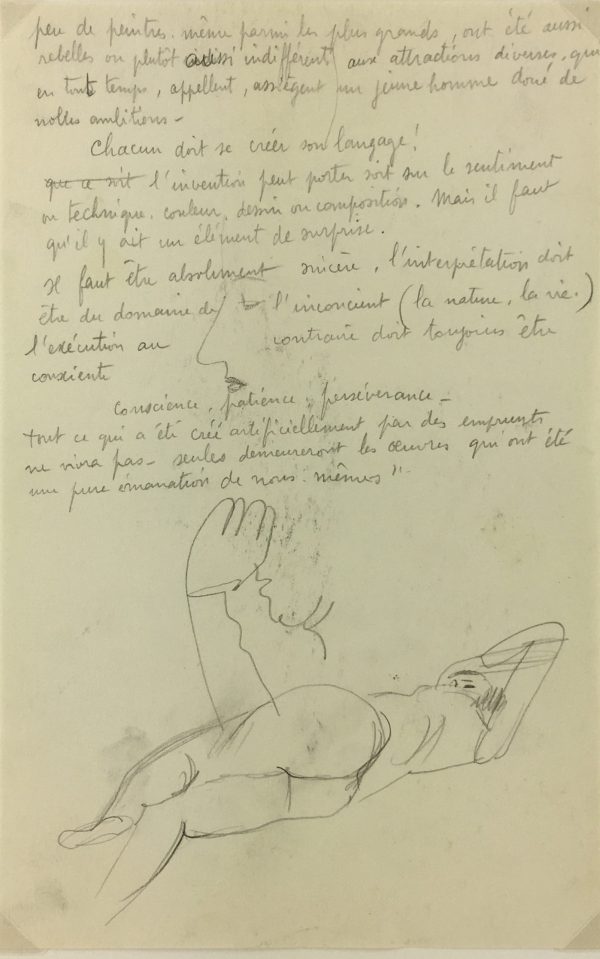 peu de peintres. même parmi les plus grands, ont été aussi
rebelles ou plutôt aussi indifférent aux attractions diverses, qui
en tout temps, appellent, assiègent un jeune homme doué de
nobles ambitions -
Chacun doit se créer son langage!
que ce soit l'invention peut porter soit sur le sentiment
ou technique. couleur, dessin ou composition. Mais il faut
qu'il y ait un élément de surprise.
Il faut être absolument sincère, l'interprétation doit
être du domaine de l'inconcient (la nature, la vie.)
l'exécution au contraire doit toujours être
consciente
Conscience, patience, persévérance -
tout ce qui a été créé artificiellement par des emprunts
ne vivra pas - seules demeureront les œuvres qui ont été
une pure émanation de nous. mêmes"